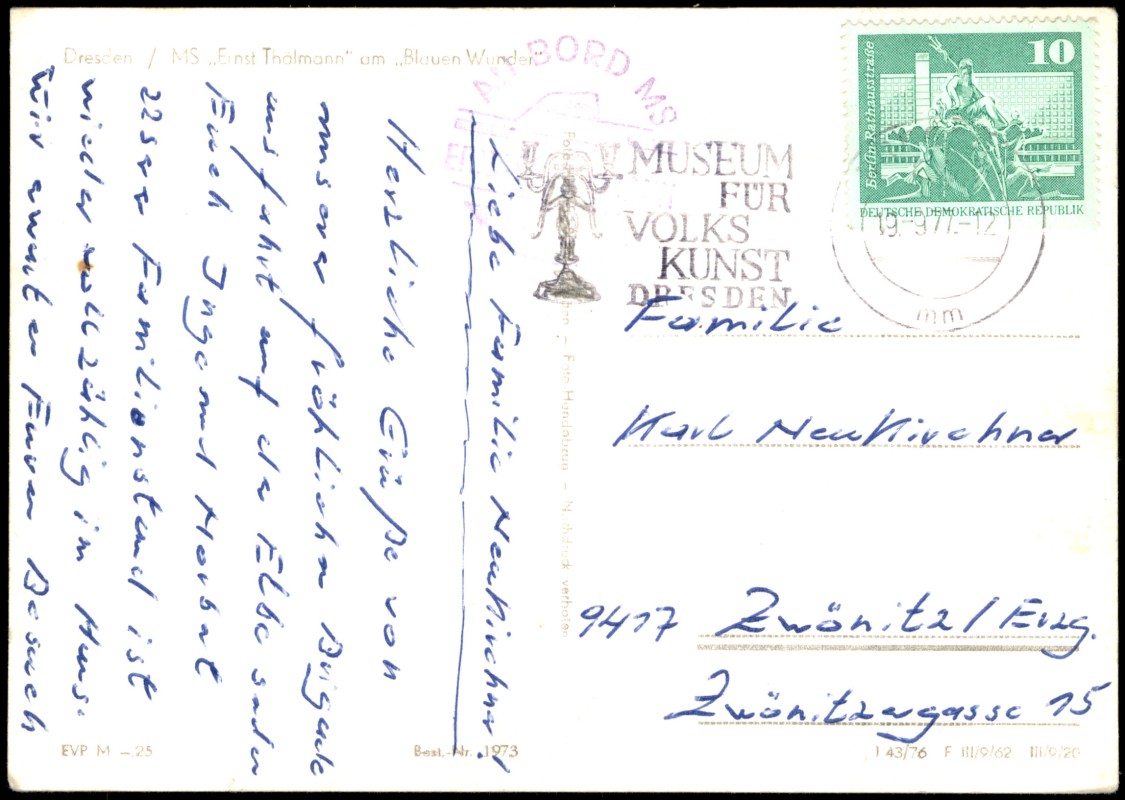 Dresden / MS „Ernst Thälmann" am „Blauen Wunder"
AN BORD MS
MUSEUM
FÜR
VOLKS
KUNST
DRESDEN
10
Berlin-Rathausstraße
DEUTSCHE DEMOKRATISCHE REPUBLIK
19.-9.77.-12
Liebe Familie Neukirchner!
Herzliche Grüße von
unserer fröhlichen Brigade
ausfahrt auf der Elbe senden
Euch Inge und Herbert
Unser Familienstand ist
wieder vollzählig im Hause
Wir erwarten Euren Besuch
Familie
Karl Neukirchner
9417 Zwönitz/Erzg.
Zwönitzergasse 15
Foto Handabzug – Nachdruck verboten
EVP M –.25
Best.-Nr. 1973
J 43/76 F III/9/62 III/9/20